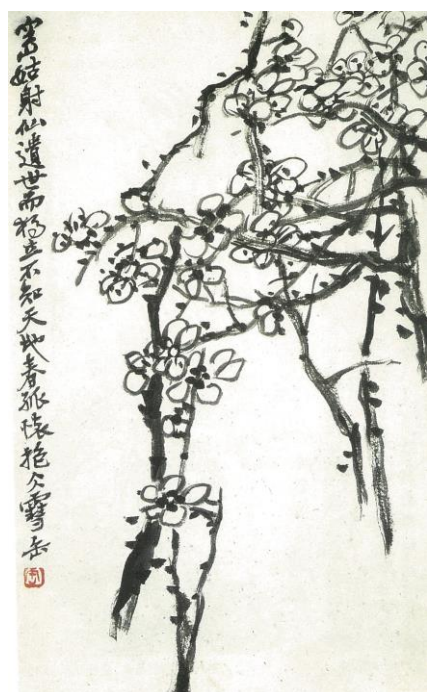 姑射仙遺世而獨立不知天地春孤懷抱仌雪缶